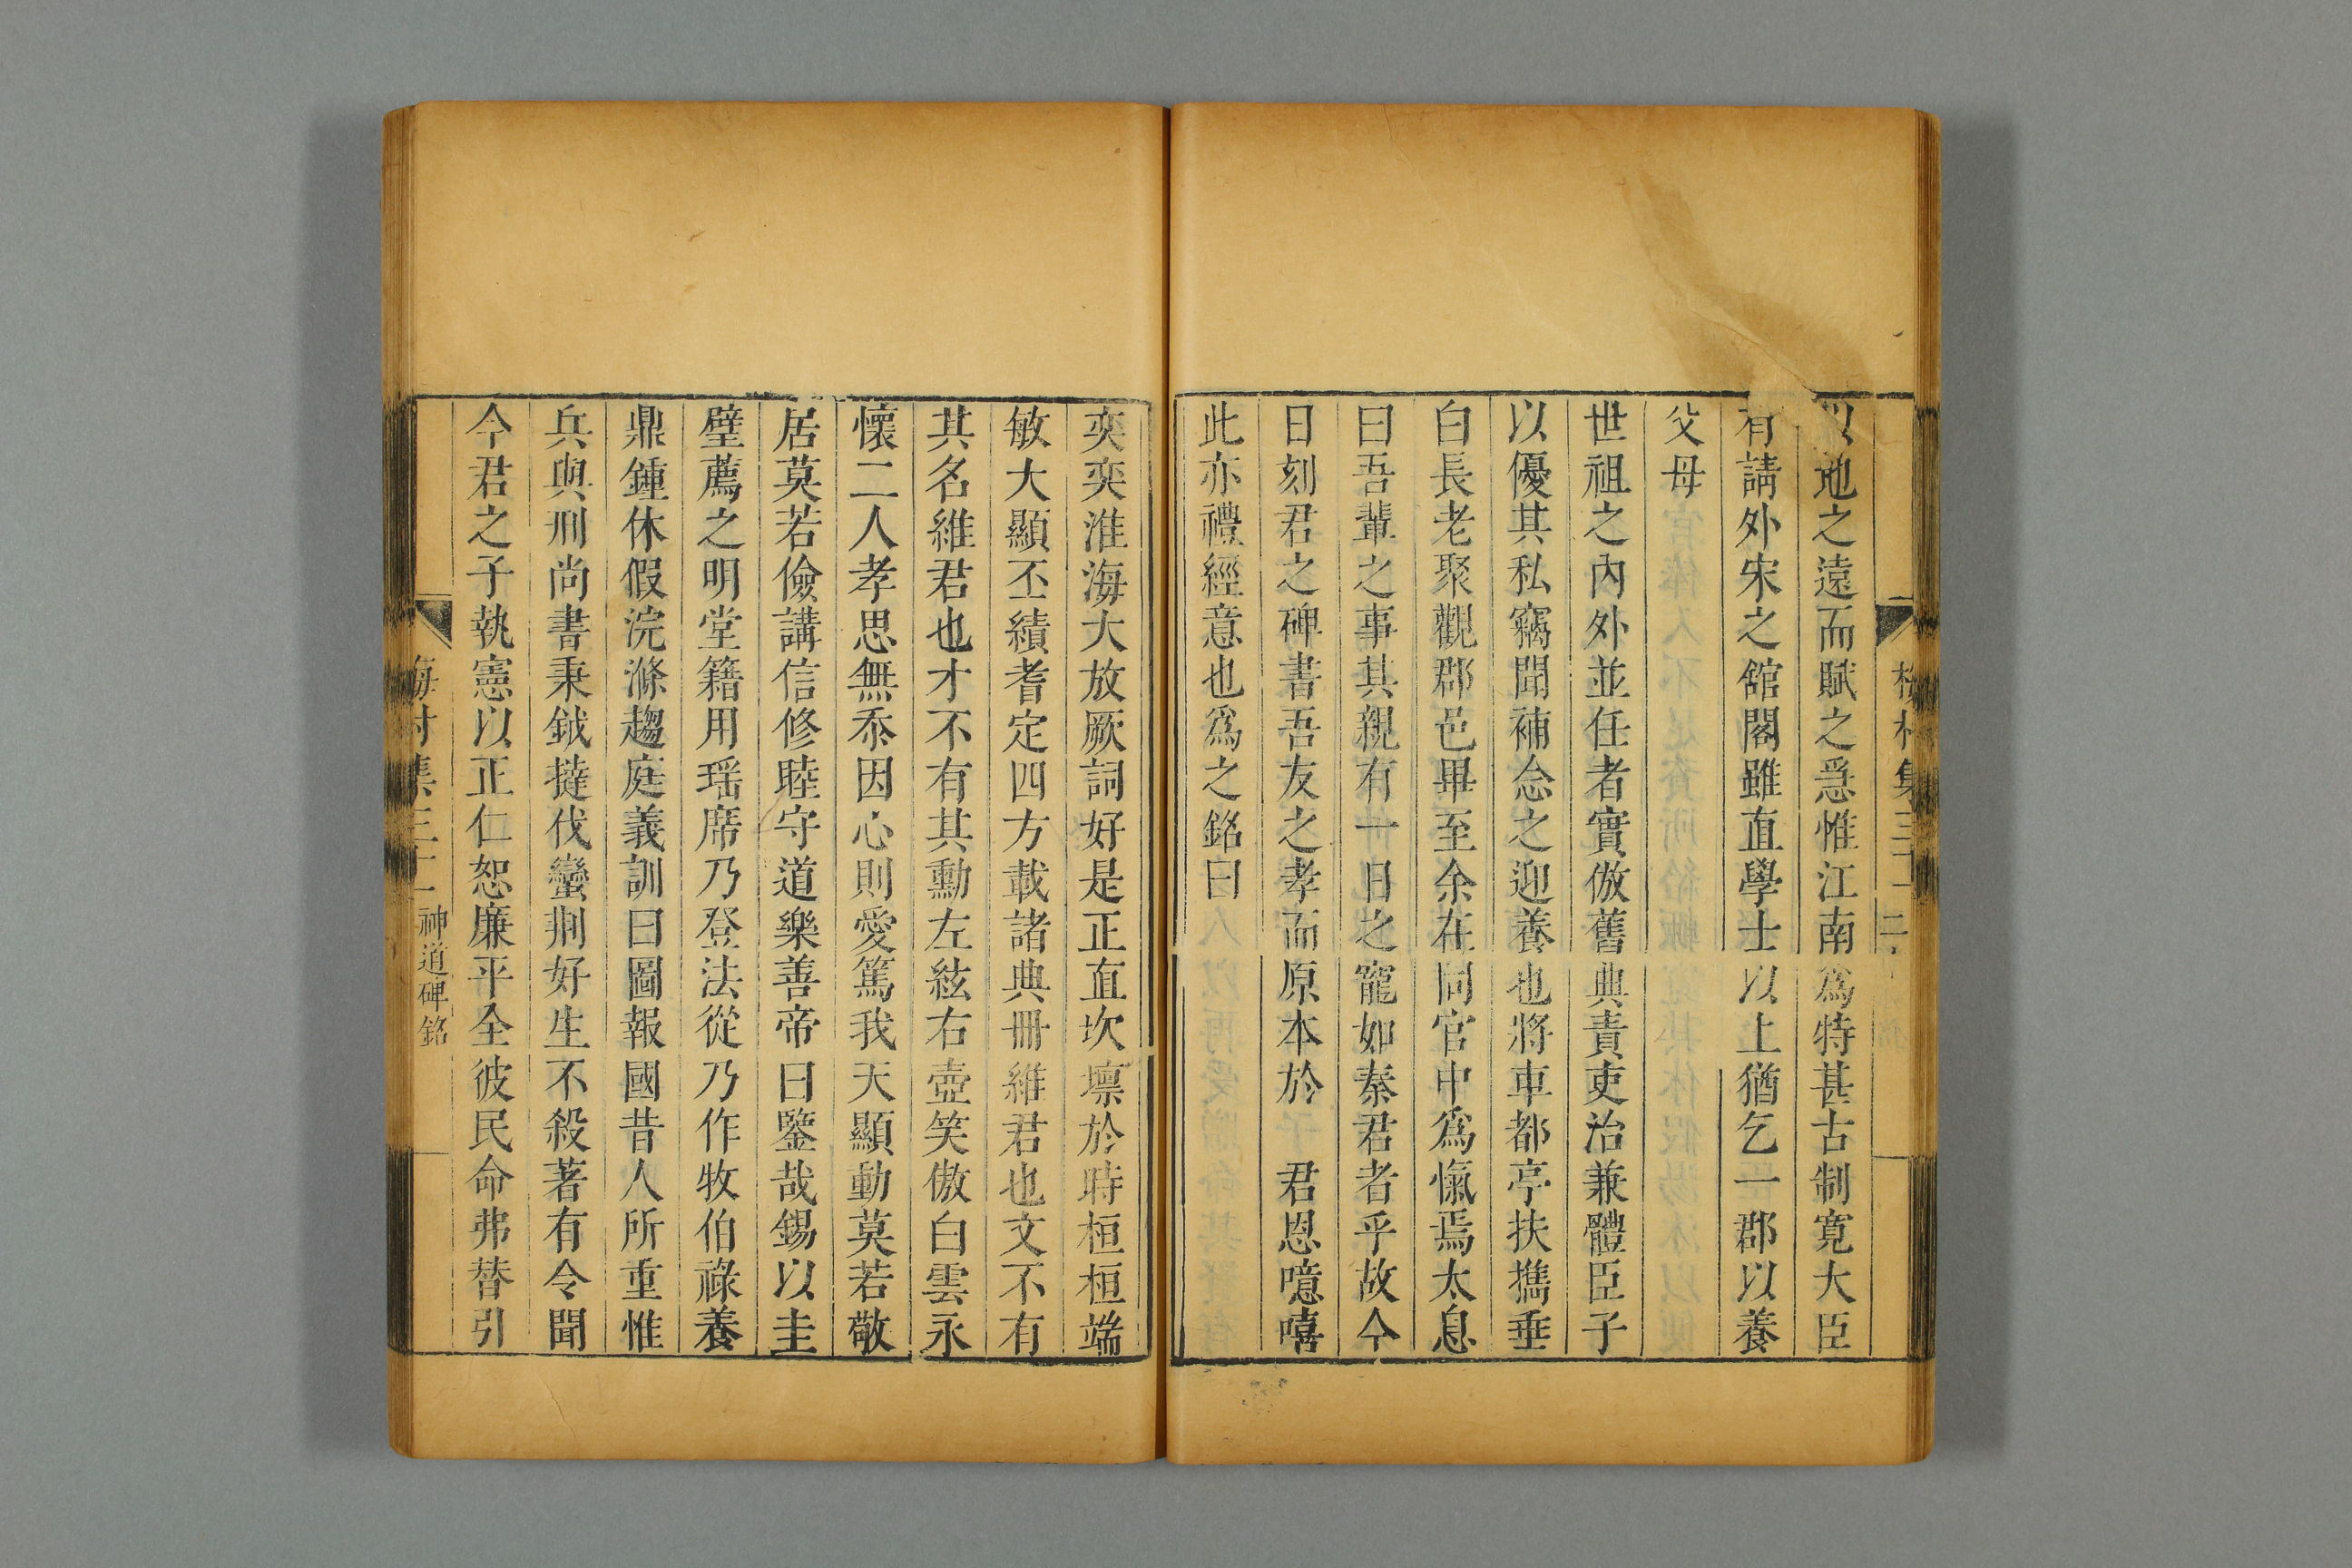 以地之遠而賦之急惟江南爲特甚古制寬大臣
有請外宋之舘閣雖直學士以上猶乞一郡以養
父母
世祖之內外並任者實倣舊典責吏治兼體臣子
以優其私竊聞補念之迎養也將車都亭扶擕垂
白長老聚觀郡邑畢至余在同官中爲愾焉太息
曰吾輩之事其親有一日之寵如秦君者乎故今
日刻君之碑書吾友之孝而原本於 君恩噫嘻
此亦禮經意也爲之銘曰
奕奕淮海大放厥詞好是正直坎壈於時桓桓端
敏大顯丕績耆定四方載諸典冊維君也文不有
其名維君也才不有其勳左絃右壺笑傲白雲永
懷二人孝思無忝因心則愛篤我天顯動莫若敬
居莫若儉講信修睦守道樂善帝曰鑒哉錫以圭
璧薦之明堂籍用瑶席乃登法從乃作牧伯祿養
鼎鍾休假浣滌趨庭義訓曰圖報國昔人所重惟
兵與刑尚書秉鉞撻伐蠻荆好生不殺著有令聞
今君之子執憲以正仁恕廉平全彼民命弗替引
梅村集三十二 神道碑銘